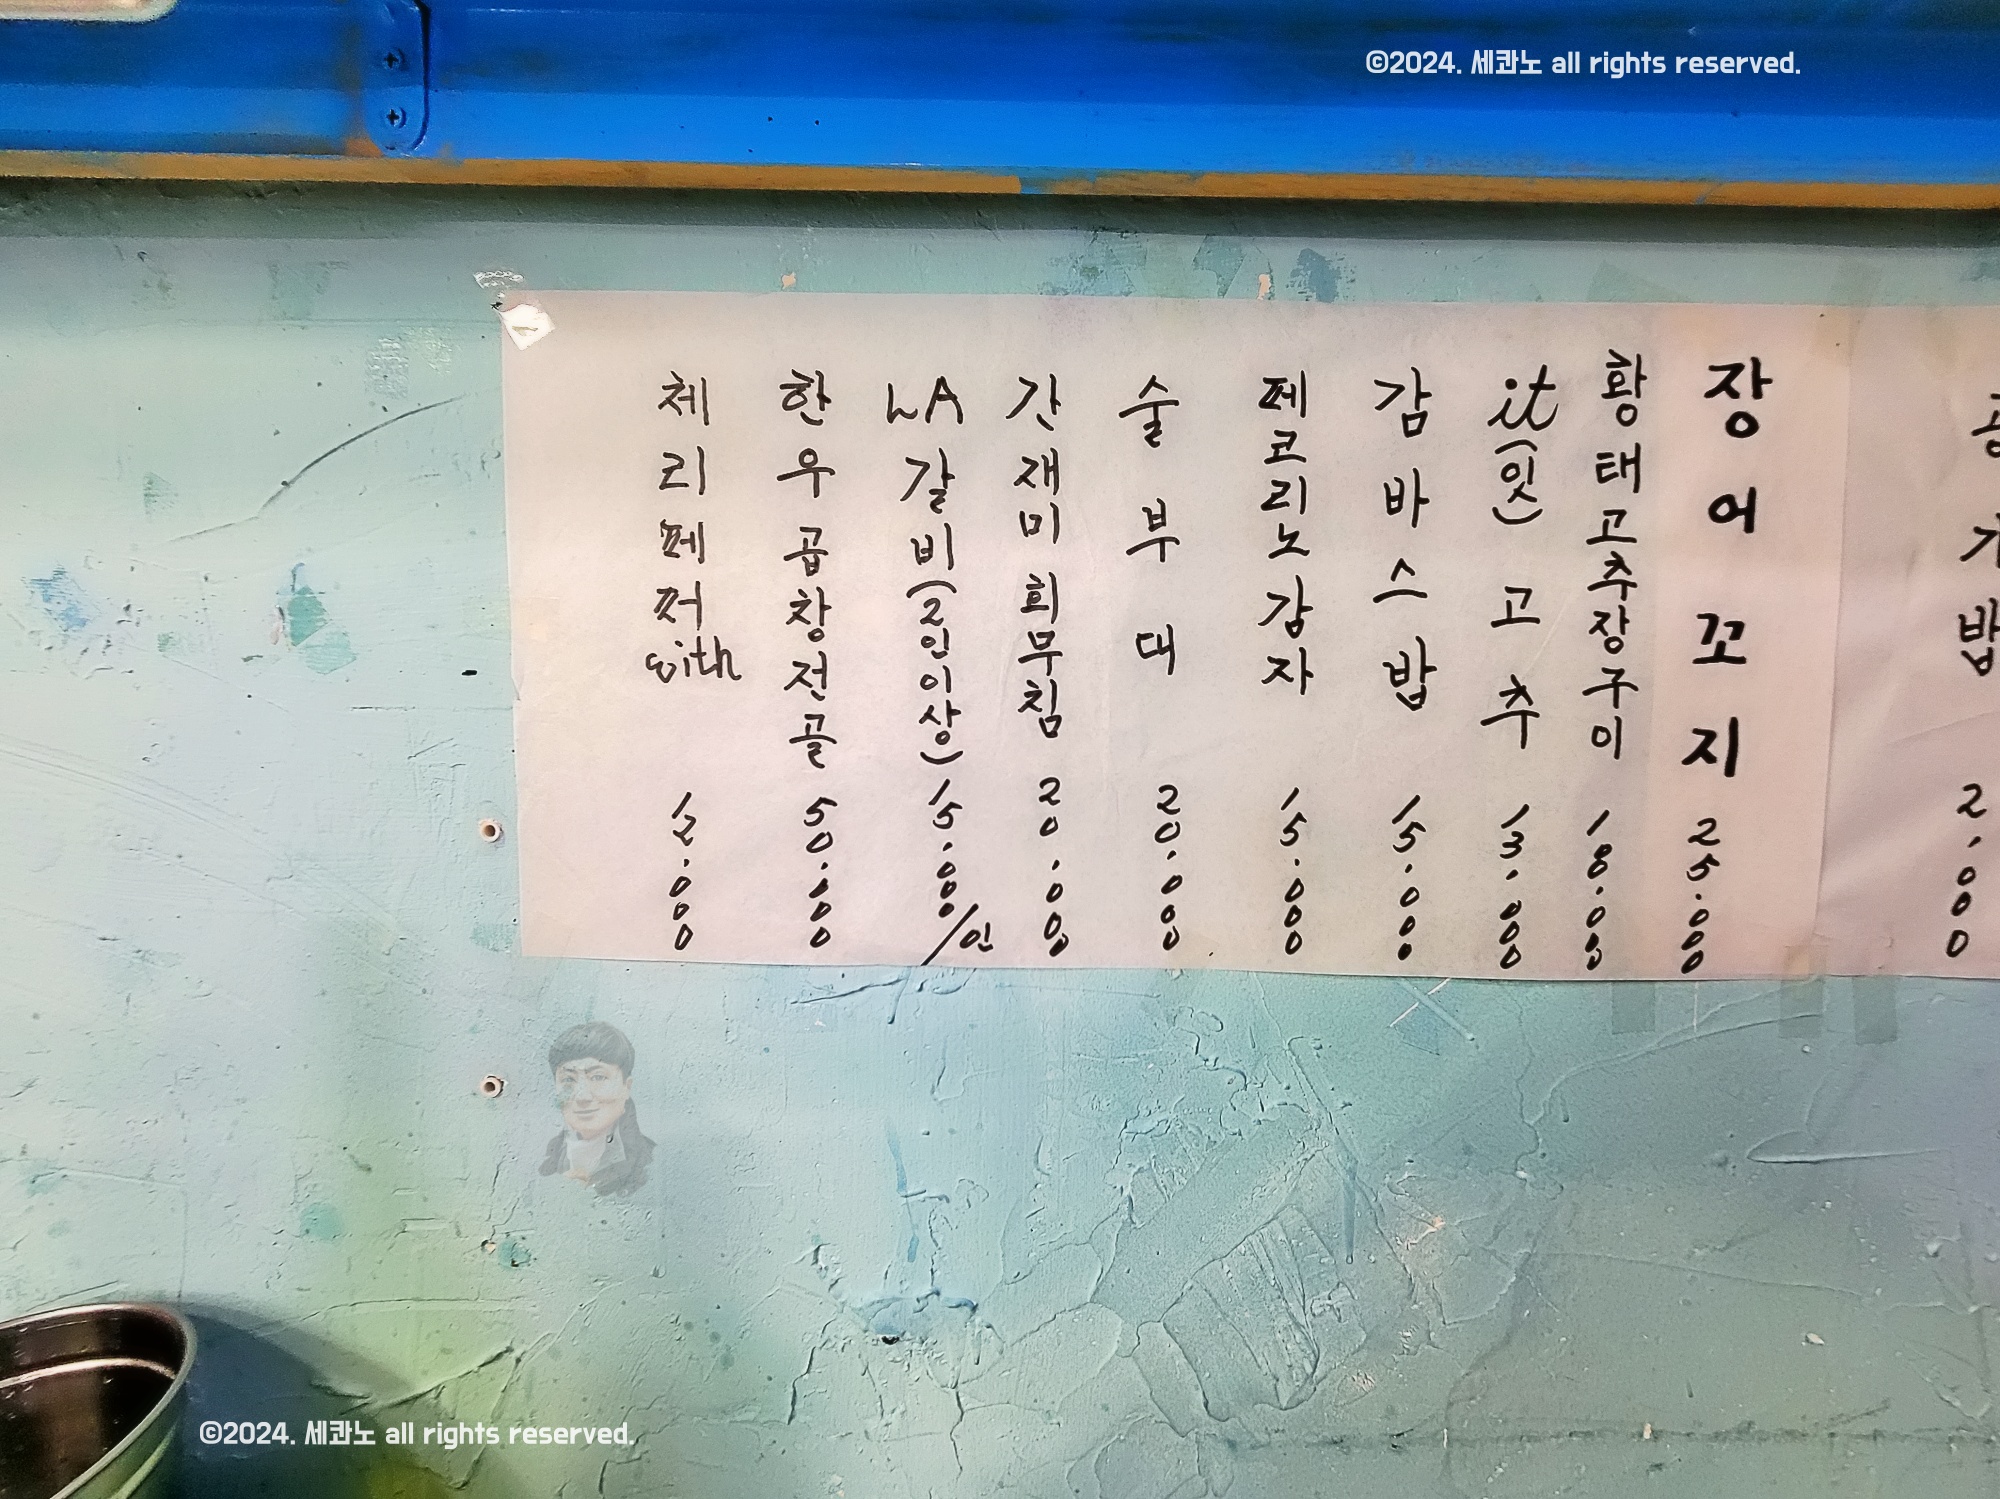 ©2024. 세콰노 all rights reserved.
체리페퍼 with 12.000
한우곱창전골 50.000
LA갈비(2인이상) 15.000/인
간재미 회무침 20.000
술부대 20.000
페코리노 감자 15.000
감바스밥 15.000
it(잇)고추 13.000
황태고추장구이 18.000
장어꼬지 25.000
공기밥 2.000
©2024. 세콰노 all rights reserved.